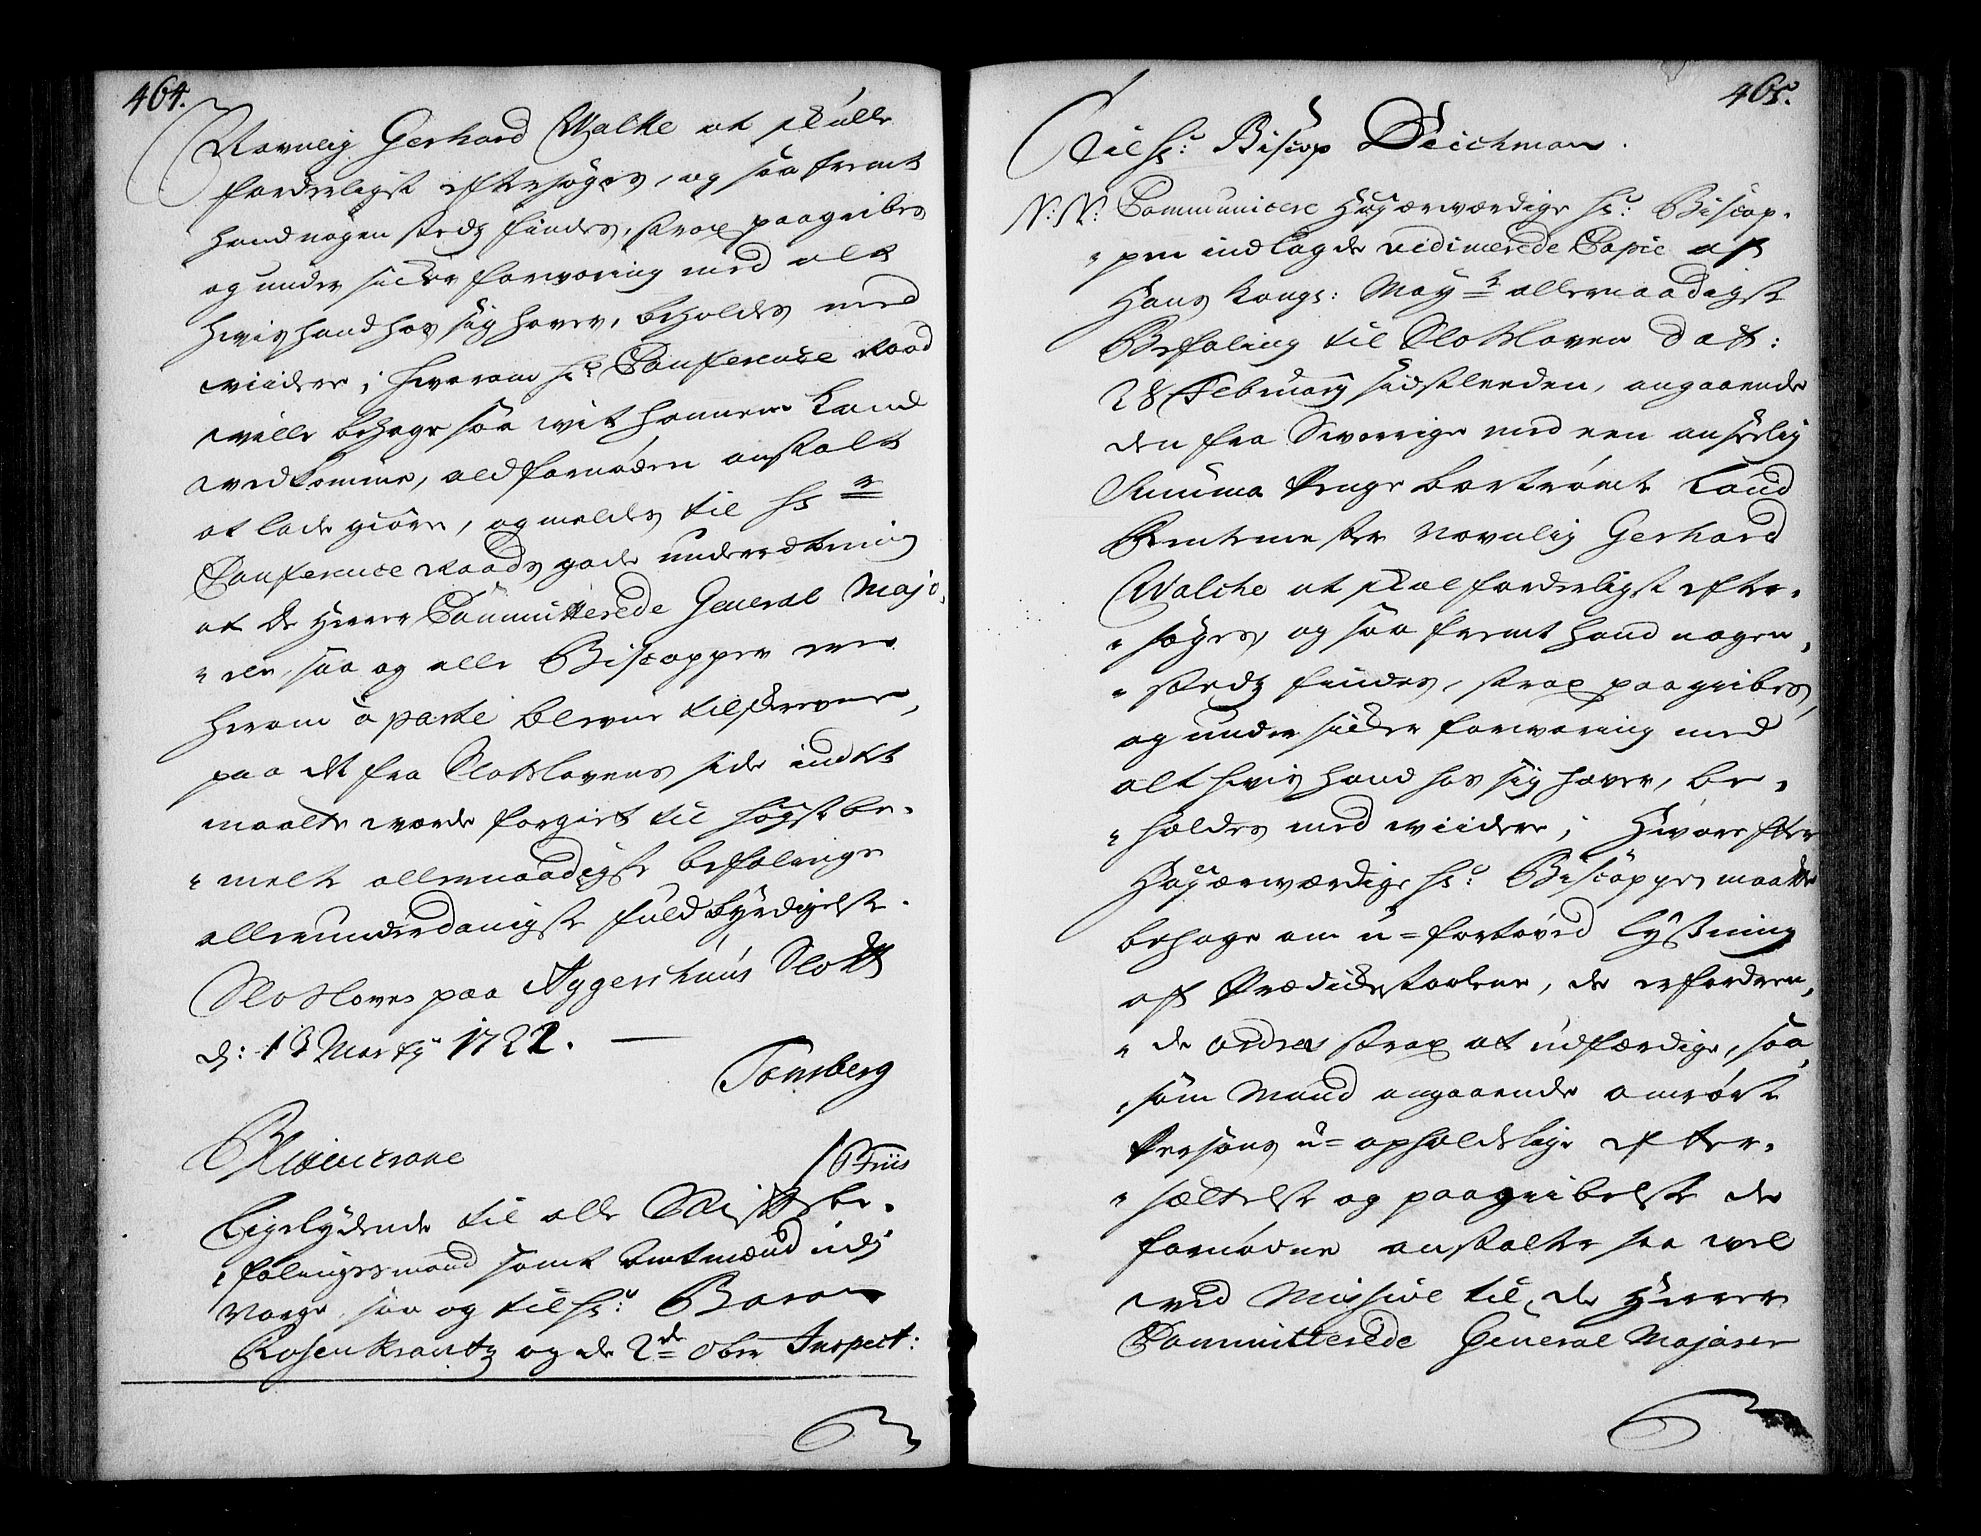 464.
Navnlig Gerhard Walke at skulle
forderligst eftersøges, og saafremt
hand nogenstedz findes, strax paagribes
og under sicker forvaring med alt
hvis hand hos sig haver, beholdes med
viidere; hvorom Hr Conference Raad
wille behage saa vit hannem kand
vedkomme, ald fornøden anstalt
at lade giøre, og meldes til Hr
Conference Raads gode underretning
at de Herrer Committerede General Majo,
„rer, saa og alle Biscopper ere
herom a parte blevne tilskrevne,
paa det fra Slotslovens side indtet
maatte worde forgiet til høystbe-
„melte allernaadigste befalings
allerunderdanigste fuldbyrdigelse.
Slotsloven paa Aggershuus Slott
d: 13 Marty 1722.
Tonsberg
Blixencrone
Friis
Ligelydende til alle Stiftsbe-
„falingsmænd samt Amtmænd udi
Norge, saa og til Hr: Baron
Rosenkrantz og de 2de Ober Inspect:
465.
Til Hr: Biscop Deichman.
N: N: Communicere Høyærværdige Hr: Biscop-
„pen indlagde vidimerede Copie af
Hans Kongl: May:ts allernaadigste
Befaling til Slotsloven Dat:
28 February sidstleeden, angaaende
den fra Sverrige med een anseelig
Summa Penge bortrømt Land
Rentemester Navnlig Gerhard
Walche at skal forderligst efter-
„søges, og saa fremt hand nogen,
„stedz findes, strax paagribes,
og under sicker forvaring med
alt hvis hand hos sig haver, be-
„holdes med viidere; Hvorefter
Høyærværdige Hr: Biscoppen maatte
behage om u-fortøved lysning
af Prædickestoolene, de erfordren,
„de ordres strax at udfærdige, saa,
„som Mand angaaende omrørte
Persons u-opholdelige efter-
„sættelse og paagribelse de
fornødne anstalter saa vel
ved Missive til de Herrer
Committerede General Majorer